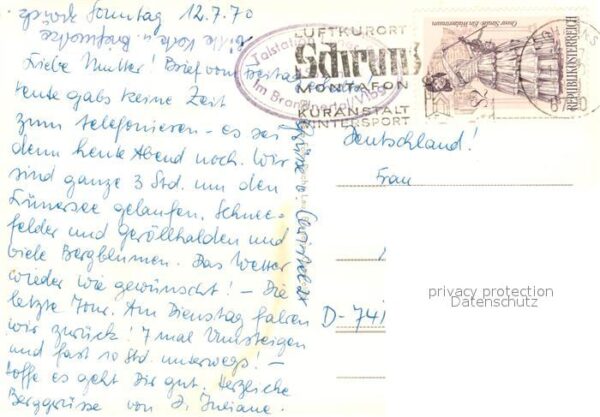 Sonntag 12.7.70
Bitte Karte u. Briefmarke
Liebe Mutter! Brief vom Freitag
heute gabs keine Zeit
zum telefonieren - es sei
denn heute Abend noch. Wir
sind ganze 3 Std. um den
Lünersee gelaufen. Schnee-
felder und geröllhalden und
viele Bergblumen. Das Wetter
wieder wie gewünscht! - Die
letzte Tour. Am Dienstag fahren
wir zurück! 7 mal Umsteigen
und fast 10 Std. unterwegs! -
hoffe es geht Dir gut. Herzliche
Berggrüsse von D. Juliane.
Grüsse v. Christel
Talstation
Im Brandnertal
LUFTKURORT
Schruns
MONTAFON
KURANSTALT
WINTERSPORT
REPUBLIK ÖSTERREICH
2
Deutschland!
Frau
D-741
privacy protection
Datenschutz